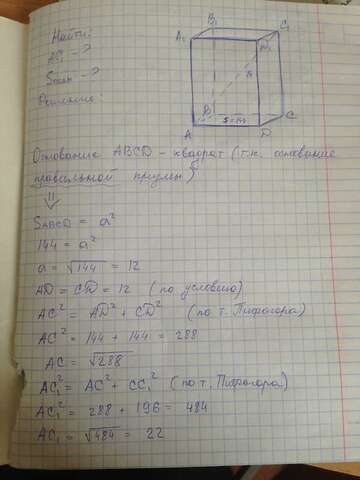 Найти:
AC₁ - ?
Sосн - ?
Решение:
B₁
C₁
A₁
D₁
B
C
A
D
Основание ABCD - квадрат (т.к. основание
правильной призмы)
⇓
SABCD = a²
144 = a²
a = √144 = 12
AD = CD = 12 (по условию)
AC² = AD² + CD² (по т. Пифагора)
AC² = 144 + 144 = 288
AC = √288
AC₁² = AC² + CC₁² (по т. Пифагора)
AC₁² = 288 + 196 = 484
AC₁ = √484 = 22